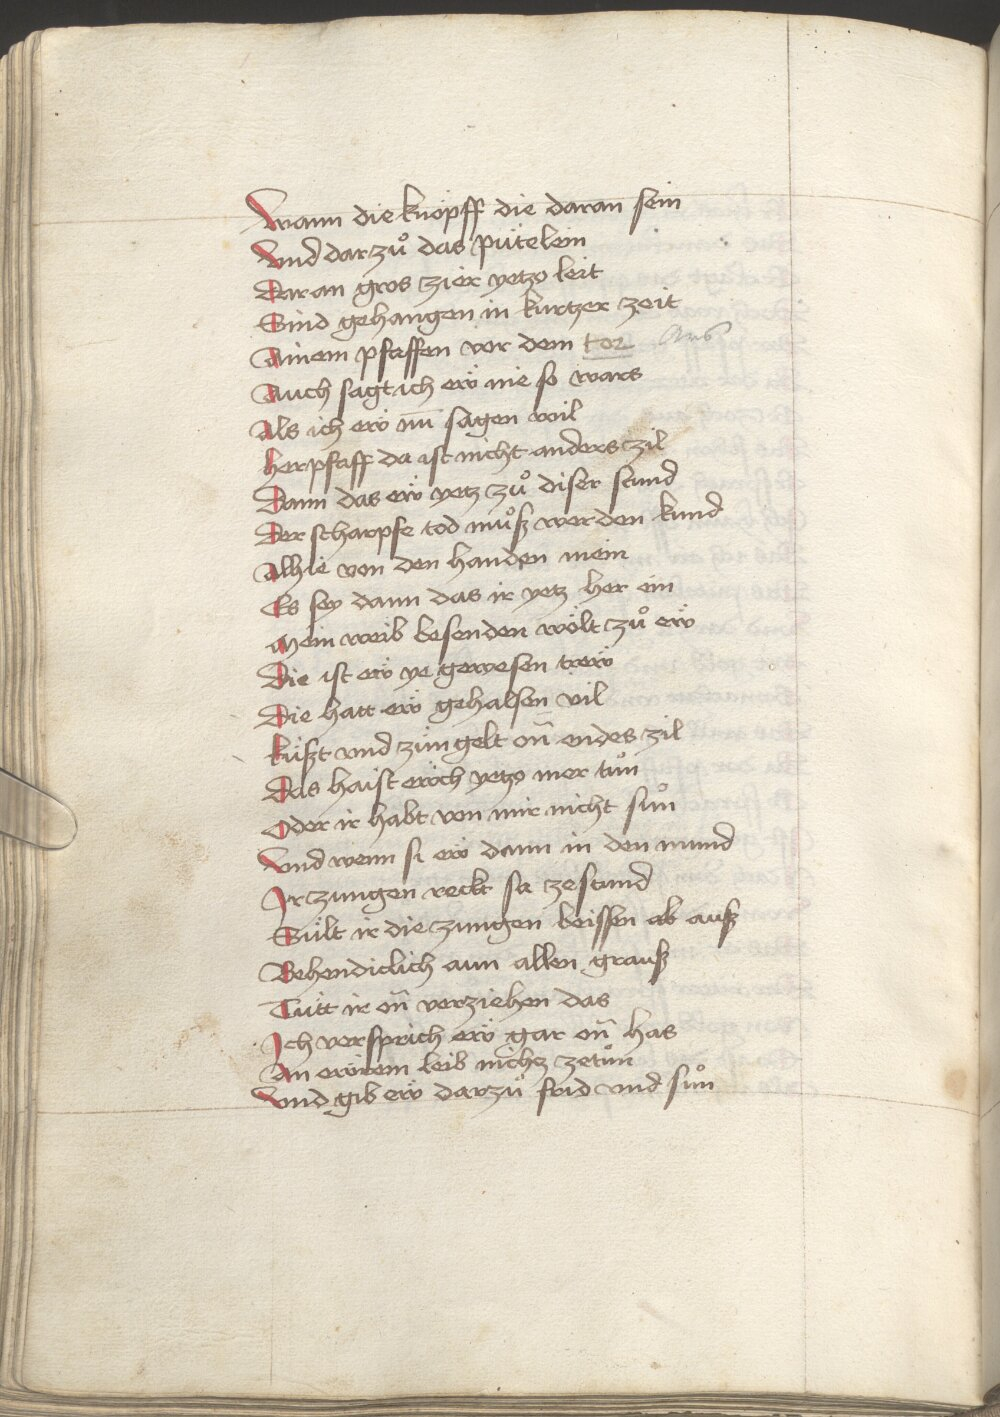 Wann die knöpff die daran sein
Vnd darzů das pütelein
Daran gros zier yetzo leit
Sind gehangen in kurtzer zeit
Ainem pfaffen vor dem tor ars
Auch sagt ich eẅ nie so wars
Als ich eẅ nū sagen wil
her pfaff da ist nicht anders zil
Dann das eẅ yetz zů diser stund
Der scharpfe tod můß werden kund
Alhie von den handen mein
Es sey dann das ir yetz her ein
Mein weib besenden wölt zů eẅ
Die ist eẅ ye gewesen treẅ
Die hatt eẅ gehalsen vil
küßt vnd züngelt on̄ endes zil
Das haist eẅch yetzo mer tůn
Oder ir habt von mir nicht sůn
Vnd wenn si eẅ dann in den mund
Ir zungen reckt sa ze stund
Sült ir die zungen beissen ab auß
Behendiclich aun allen grauß
Tütt ir on̄ verziehen das
Ich versprich eẅ gar on̄ has
An eẅrem leib nichcz zetůn
Vnd gib eẅ darzů frid vnd sůn